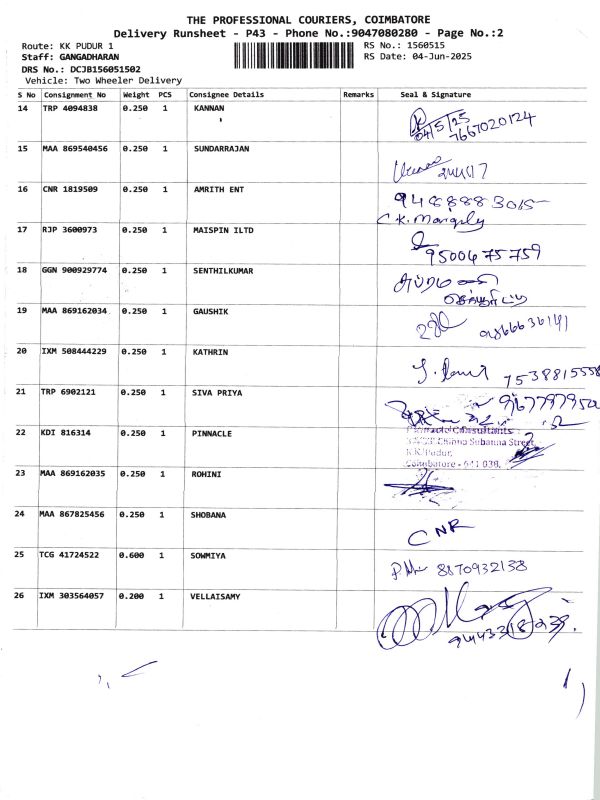 THE PROFESSIONAL COURIERS, COIMBATORE
Delivery Runsheet - P43 - Phone No.:9047080280 - Page No.:2
Route: KK PUDUR 1
RS No.: 1560515
Staff: GANGADHARAN
RS Date: 04-Jun-2025
DRS No.: DCJB156051502
Vehicle: Two Wheeler Delivery
S No Consignment No Weight PCS Consignee Details Remarks Seal & Signature
14 TRP 4094838 0.250 1 KANNAN
04/5/25
7667020124
15 MAA 869540456 0.250 1 SUNDARRAJAN
16 CNR 1819509 0.250 1 AMRITH ENT
17 RJP 3600973 0.250 1 MAISPIN ILTD
9500675759
18 GGN 900929774 0.250 1 SENTHILKUMAR
19 MAA 869162034 0.250 1 GAUSHIK
20 IXM 508444229 0.250 1 KATHRIN
7538815558
21 TRP 6902121 0.250 1 SIVA PRIYA
22 KDI 816314 0.250 1 PINNACLE
Pinnacle Consultants
Subanna Street,
K.K. Pudur,
Coimbatore - 641 038.
23 MAA 869162035 0.250 1 ROHINI
24 MAA 867825456 0.250 1 SHOBANA
CNR
25 TCG 41724522 0.600 1 SOWMIYA
8870932138
26 IXM 303564057 0.200 1 VELLAISAMY